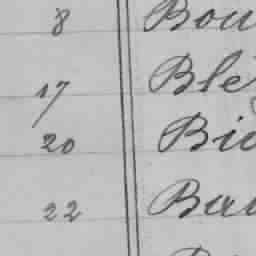 8 Bou
17 Blé
20 Bio
22 Bau